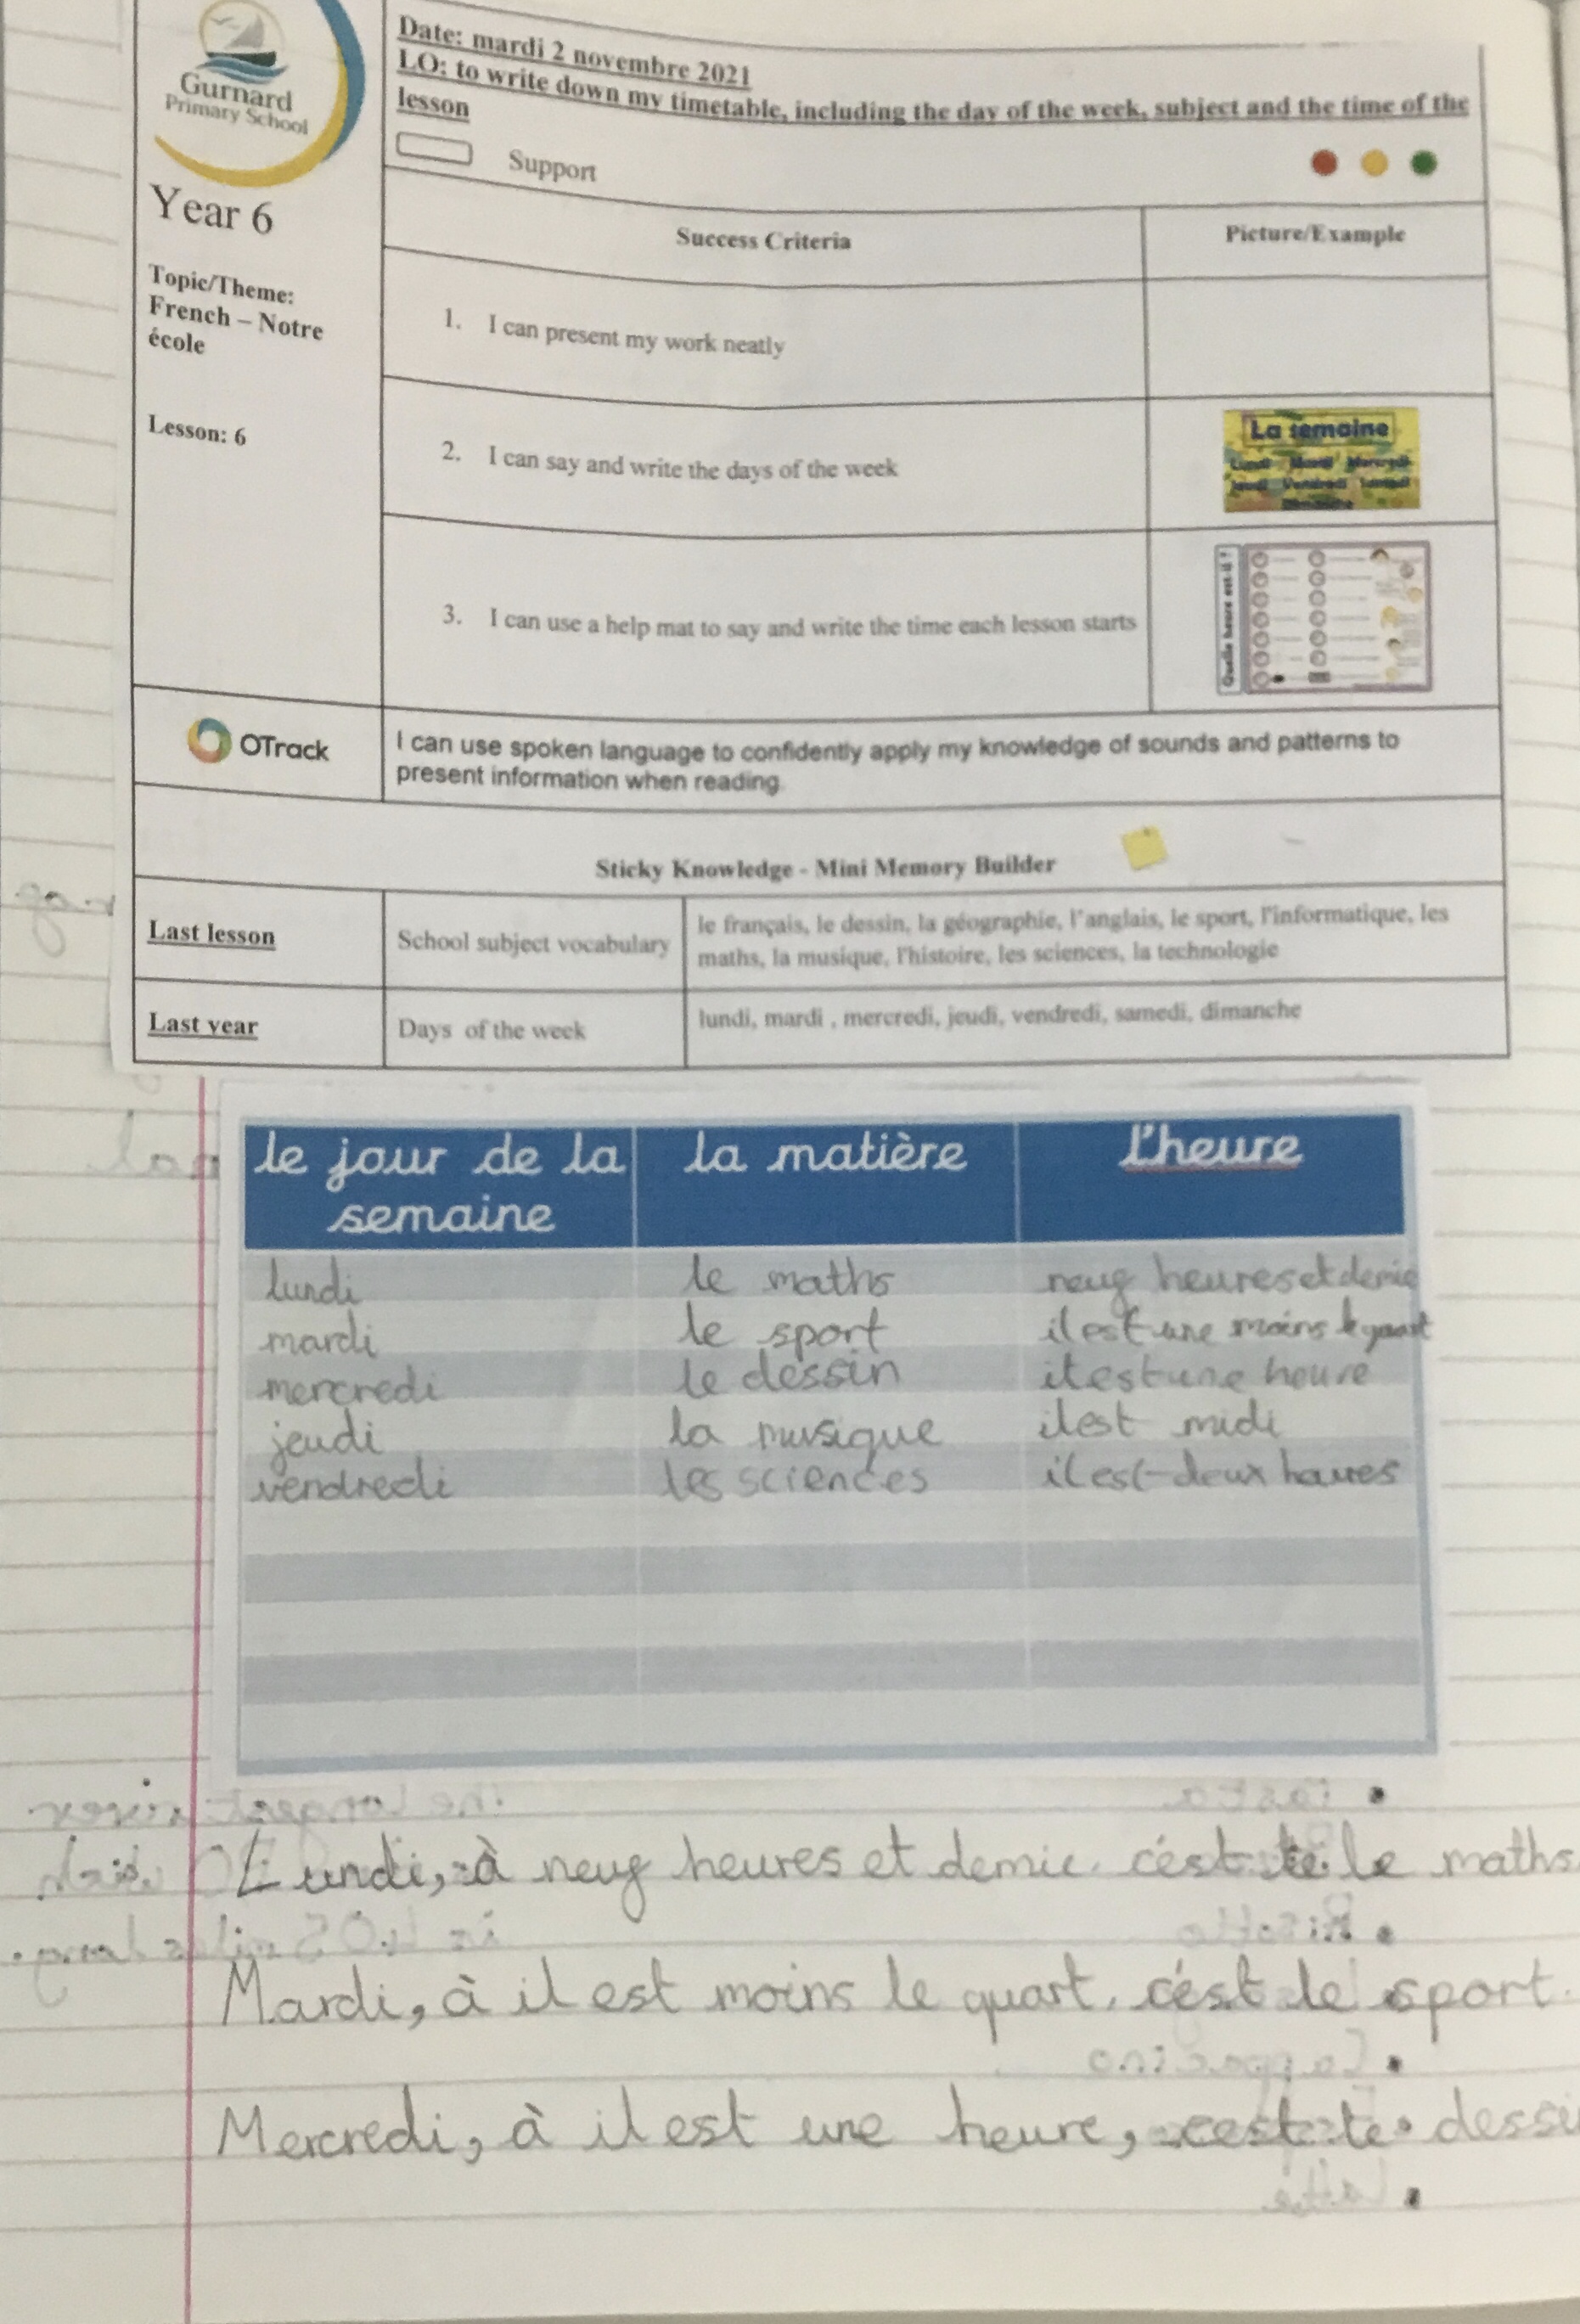 Gurnard
Primary School
Year 6
Topic/Theme:
French – Notre
école
Lesson: 6
Date: mardi 2 novembre 2021
LO: to write down my timetable, including the day of the week, subject and the time of the
lesson
Support
Success Criteria
Picture/Example
1. I can present my work neatly
2. I can say and write the days of the week
La semaine
Lundi Mardi Mercredi
Jeudi Vendredi Samedi
Dimanche
3. I can use a help mat to say and write the time each lesson starts
Quelle heure est-il ?
OTrack
I can use spoken language to confidently apply my knowledge of sounds and patterns to
present information when reading
Sticky Knowledge - Mini Memory Builder
Last lesson
School subject vocabulary
le français, le dessin, la géographie, l'anglais, le sport, l'informatique, les
maths, la musique, l'histoire, les sciences, la technologie
Last year
Days of the week
lundi, mardi , mercredi, jeudi, vendredi, samedi, dimanche
le jour de la la matière l'heure
semaine
lundi le maths neuf heures et demie
mardi le sport il est une moins le quart
mercredi le dessin il est une heure
jeudi la musique il est midi
vendredi les sciences il est deux heures
Lundi, à neuf heures et demie. c'ést le maths
Mardi, à il est moins le quart. c'ést le sport.
Mercredi, à il est une heure, c'est le dessi